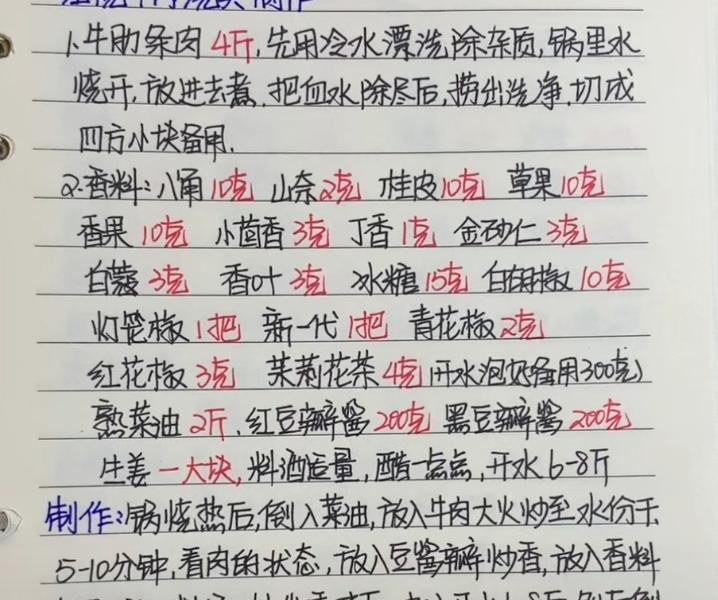 1、牛肋条肉4斤,先用冷水漂洗除杂质,锅里水
烧开,放进去煮,把血水除尽后,捞出洗净,切成
四方小块备用.
2.香料:八角10克 山奈2克 桂皮10克 草果10克
香果10克 小茴香3克 丁香1克 金砂仁3克
白蔻3克 香叶3克 冰糖15克 白胡椒10克
灯笼椒1把 新一代1把 青花椒2克
红花椒3克 茉莉花茶4克(开水泡好备用300克)
熟菜油2斤,红豆瓣酱200克 黑豆瓣酱200克
生姜一大块,料酒适量,醋一点点,开水6-8斤
制作:锅烧热后,倒入菜油,放入牛肉大火炒至水份干
5-10分钟,看肉的状态,放入豆酱瓣炒香,放入香料